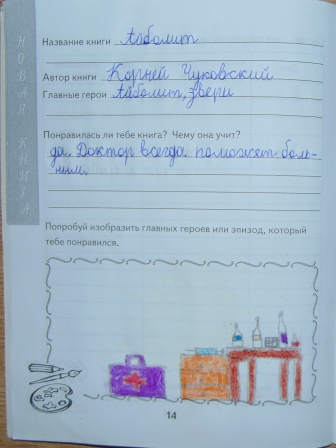 НОВАЯ КНИГА
Название книги Айболит
Автор книги Корней Чуковский
Главные герои Айболит, звери
Понравилась ли тебе книга? Чему она учит?
да. Доктор всегда поможет боль-
ним.
Попробуй изобразить главных героев или эпизод, который
тебе понравился.
14